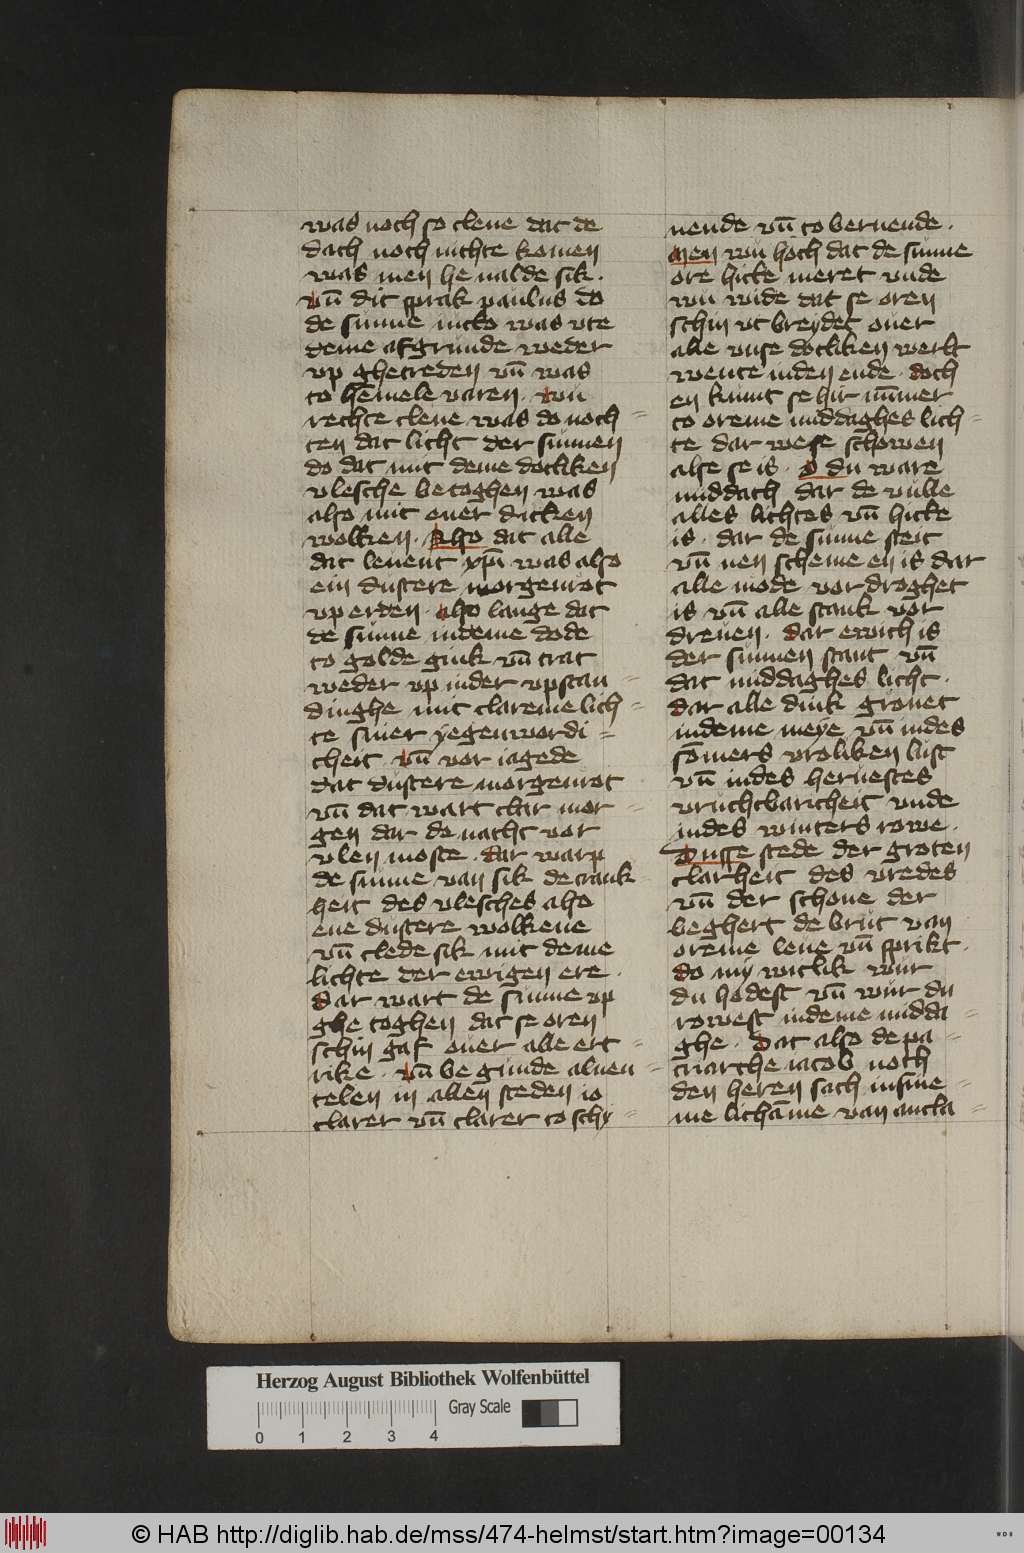 was noch so clene dat de
dach noch nichte komen
was men he nalde sik ·
vn̄ dit sprak paulus do
de sunne nicko was vte
deme afgrunde weder
vp ghetreden vn̄ was
to hemele varen · wu
rechte clene was do noch =
ten dat licht der sunnen
do dat mit deme dotliken
vlesche betoghen was
also mit ener dicken
wolken · Also dat alle
dat leuent xpī was also
ein dustere morgenrot
vp erden · also lange dat
de sunne in deme dode
to golde gink vn̄ trat
weder vp in der vpstan =
dinghe mit clareme lich =
te siner yegenwordi =
cheit · vn̄ vor iagede
dat dustere morgenrot
vn̄ dat wart clar mor =
gen dar de nacht vor
vlen moste · dar warp
de sunne van sik de crank =
heit des vlesches also
ene dustere wolkene
vn̄ clede sik mit deme
lichte der ewigen ere ·
dar wart de sunne vp
ghetoghen dat se oren
schin gaf ouer alle ert =
rike · vn̄ begunde aluen =
telen in allen steden io
clarer vn̄ clarer to schy =
nende vn̄ to bernende ·
Men wu hoch dat de sunne
ore hicke meret vnde
wu wide dat se oren
schin vt breydet ouer
alle vnse dotliken werlt
wente in den ende · doch
en kumt se hir nūmer
to oreme middaghes lich =
te dar wese schowen
alse se is · O du ware
middach dar de vulle
alles lichtes vn̄ hicke
is · dar de sunne steit
vn̄ nen scheme en is dar
alle mode vordroghet
is vn̄ alle stank vor
dreuen · dar ewich is
der sunnen stant vn̄
dat middaghes licht ·
dar alle dink gronet
in deme meye vn̄ in des
sōmers vroliken lust
vn̄ in des heruestes
vruchtbaricheit vnde
in des winters rowe ·
Dusse stede der groten
clarheit des vredes
vn̄ der schone der
beghert de brut van
oreme leue vn̄ sprikt ·
do my witlik wur
du hodest vn̄ wur du
rowest in deme midda =
ghe · Dat also de pa =
triarche iacob noch
den heren sach in sine =
me lichāme van antla =
Herzog August Bibliothek Wolfenbüttel
Gray Scale
0 1 2 3 4
© HAB http://diglib.hab.de/mss/474-helmst/start.htm?image=00134